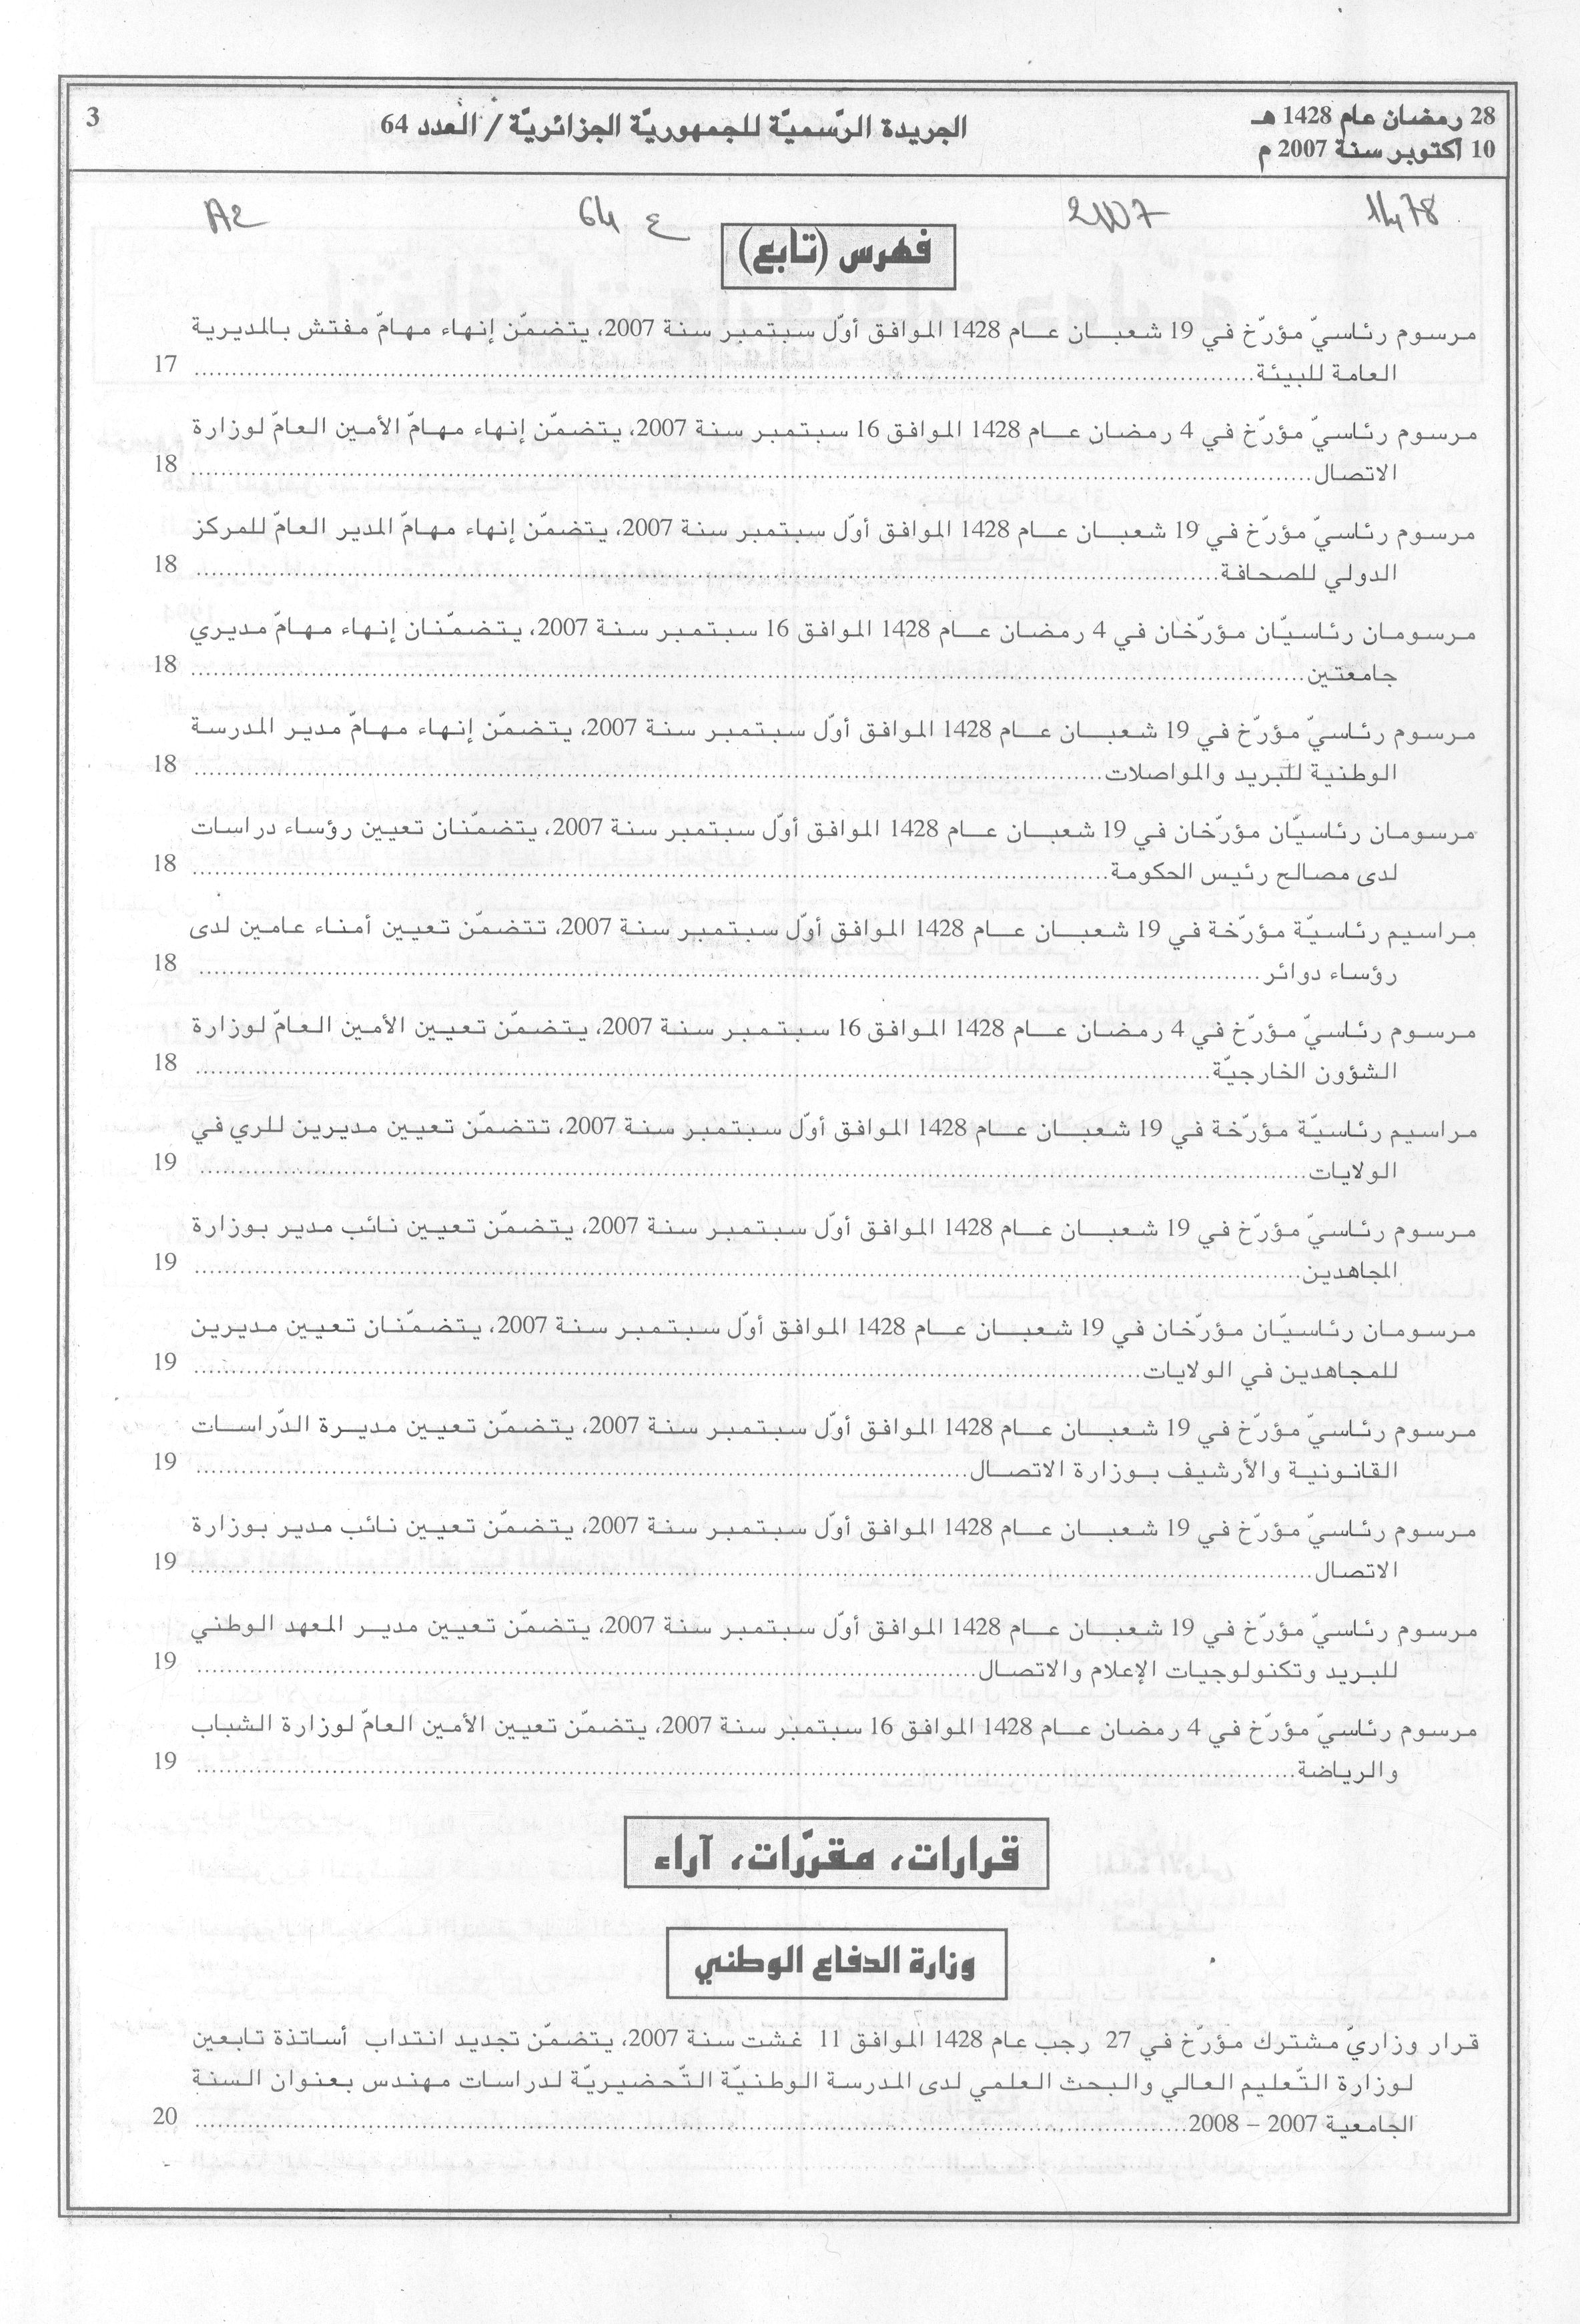 28 رمضان عام 1428 هـ
10 أكتوبر سنة 2007 م
الجريدة الرّسميّة للجمهوريّة الجزائريّة / العدد 64
3
1478
2007
ع 64
A2
فهرس (تابع)
مرسوم رئاسيّ مؤرّخ في 19 شعبان عام 1428 الموافق أوّل سبتمبر سنة 2007، يتضمّن إنهاء مهامّ مفتش بالمديرية
العامة للبيئة 17
مرسوم رئاسيّ مؤرّخ في 4 رمضان عام 1428 الموافق 16 سبتمبر سنة 2007، يتضمّن إنهاء مهامّ الأمين العامّ لوزارة
الاتصال 18
مرسوم رئاسيّ مؤرّخ في 19 شعبان عام 1428 الموافق أوّل سبتمبر سنة 2007، يتضمّن إنهاء مهامّ المدير العامّ للمركز
الدولي للصحافة 18
مرسومان رئاسيّان مؤرّخان في 4 رمضان عام 1428 الموافق 16 سبتمبر سنة 2007، يتضمّنان إنهاء مهامّ مديري
جامعتين 18
مرسوم رئاسيّ مؤرّخ في 19 شعبان عام 1428 الموافق أوّل سبتمبر سنة 2007، يتضمّن إنهاء مهامّ مدير المدرسة
الوطنية للبريد والمواصلات 18
مرسومان رئاسيّان مؤرّخان في 19 شعبان عام 1428 الموافق أوّل سبتمبر سنة 2007، يتضمّنان تعيين رؤساء دراسات
لدى مصالح رئيس الحكومة 18
مراسيم رئاسيّة مؤرّخة في 19 شعبان عام 1428 الموافق أوّل سبتمبر سنة 2007، تتضمّن تعيين أمناء عامين لدى
رؤساء دوائر 18
مرسوم رئاسيّ مؤرّخ في 4 رمضان عام 1428 الموافق 16 سبتمبر سنة 2007، يتضمّن تعيين الأمين العامّ لوزارة
الشؤون الخارجيّة 18
مراسيم رئاسيّة مؤرّخة في 19 شعبان عام 1428 الموافق أوّل سبتمبر سنة 2007، تتضمّن تعيين مديرين للري في
الولايات 19
مرسوم رئاسيّ مؤرّخ في 19 شعبان عام 1428 الموافق أوّل سبتمبر سنة 2007، يتضمّن تعيين نائب مدير بوزارة
المجاهدين 19
مرسومان رئاسيّان مؤرّخان في 19 شعبان عام 1428 الموافق أوّل سبتمبر سنة 2007، يتضمّنان تعيين مديرين
للمجاهدين في الولايات 19
مرسوم رئاسيّ مؤرّخ في 19 شعبان عام 1428 الموافق أوّل سبتمبر سنة 2007، يتضمّن تعيين مديرة الدّراسات
القانونية والأرشيف بوزارة الاتصال 19
مرسوم رئاسيّ مؤرّخ في 19 شعبان عام 1428 الموافق أوّل سبتمبر سنة 2007، يتضمّن تعيين نائب مدير بوزارة
الاتصال 19
مرسوم رئاسيّ مؤرّخ في 19 شعبان عام 1428 الموافق أوّل سبتمبر سنة 2007، يتضمّن تعيين مدير المعهد الوطني
للبريد وتكنولوجيات الإعلام والاتصال 19
مرسوم رئاسيّ مؤرّخ في 4 رمضان عام 1428 الموافق 16 سبتمبر سنة 2007، يتضمّن تعيين الأمين العامّ لوزارة الشباب
والرياضة 19
قرارات، مقرّرات، آراء
وزارة الدفاع الوطني
قرار وزاريّ مشترك مؤرّخ في 27 رجب عام 1428 الموافق 11 غشت سنة 2007، يتضمّن تجديد انتداب أساتذة تابعين
لوزارة التّعليم العالي والبحث العلمي لدى المدرسة الوطنيّة التّحضيريّة لدراسات مهندس بعنوان السنة
الجامعية 2007 – 2008 20